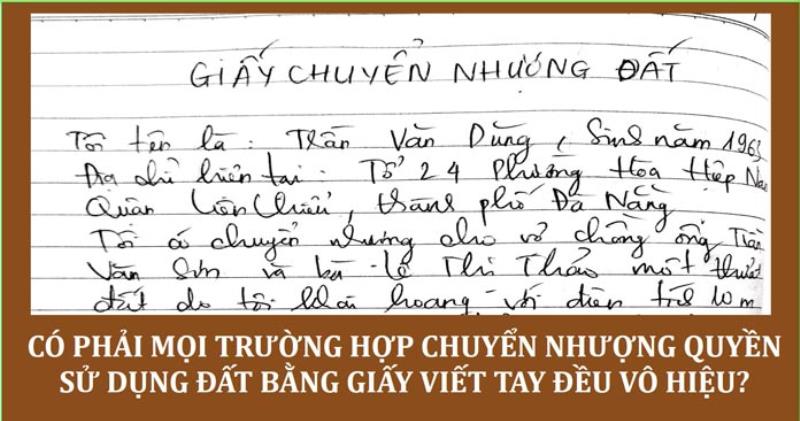 GIẤY CHUYỂN NHƯỢNG ĐẤT
Tôi tên là: Trần Văn Dũng, Sinh năm 1963
Địa chỉ hiện tại: Tổ 24 Phường Hòa Hiệp Na
Quận Liên Chiểu, thành phố Đà Nẵng
Tôi có chuyển nhượng cho vợ chồng ông Trần
Văn Sơn và bà Lê Thị Thảo một thửa
đất do tôi khai hoang với diện tích 10 m
CÓ PHẢI MỌI TRƯỜNG HỢP CHUYỂN NHƯỢNG QUYỀN
SỬ DỤNG ĐẤT BẰNG GIẤY VIẾT TAY ĐỀU VÔ HIỆU?